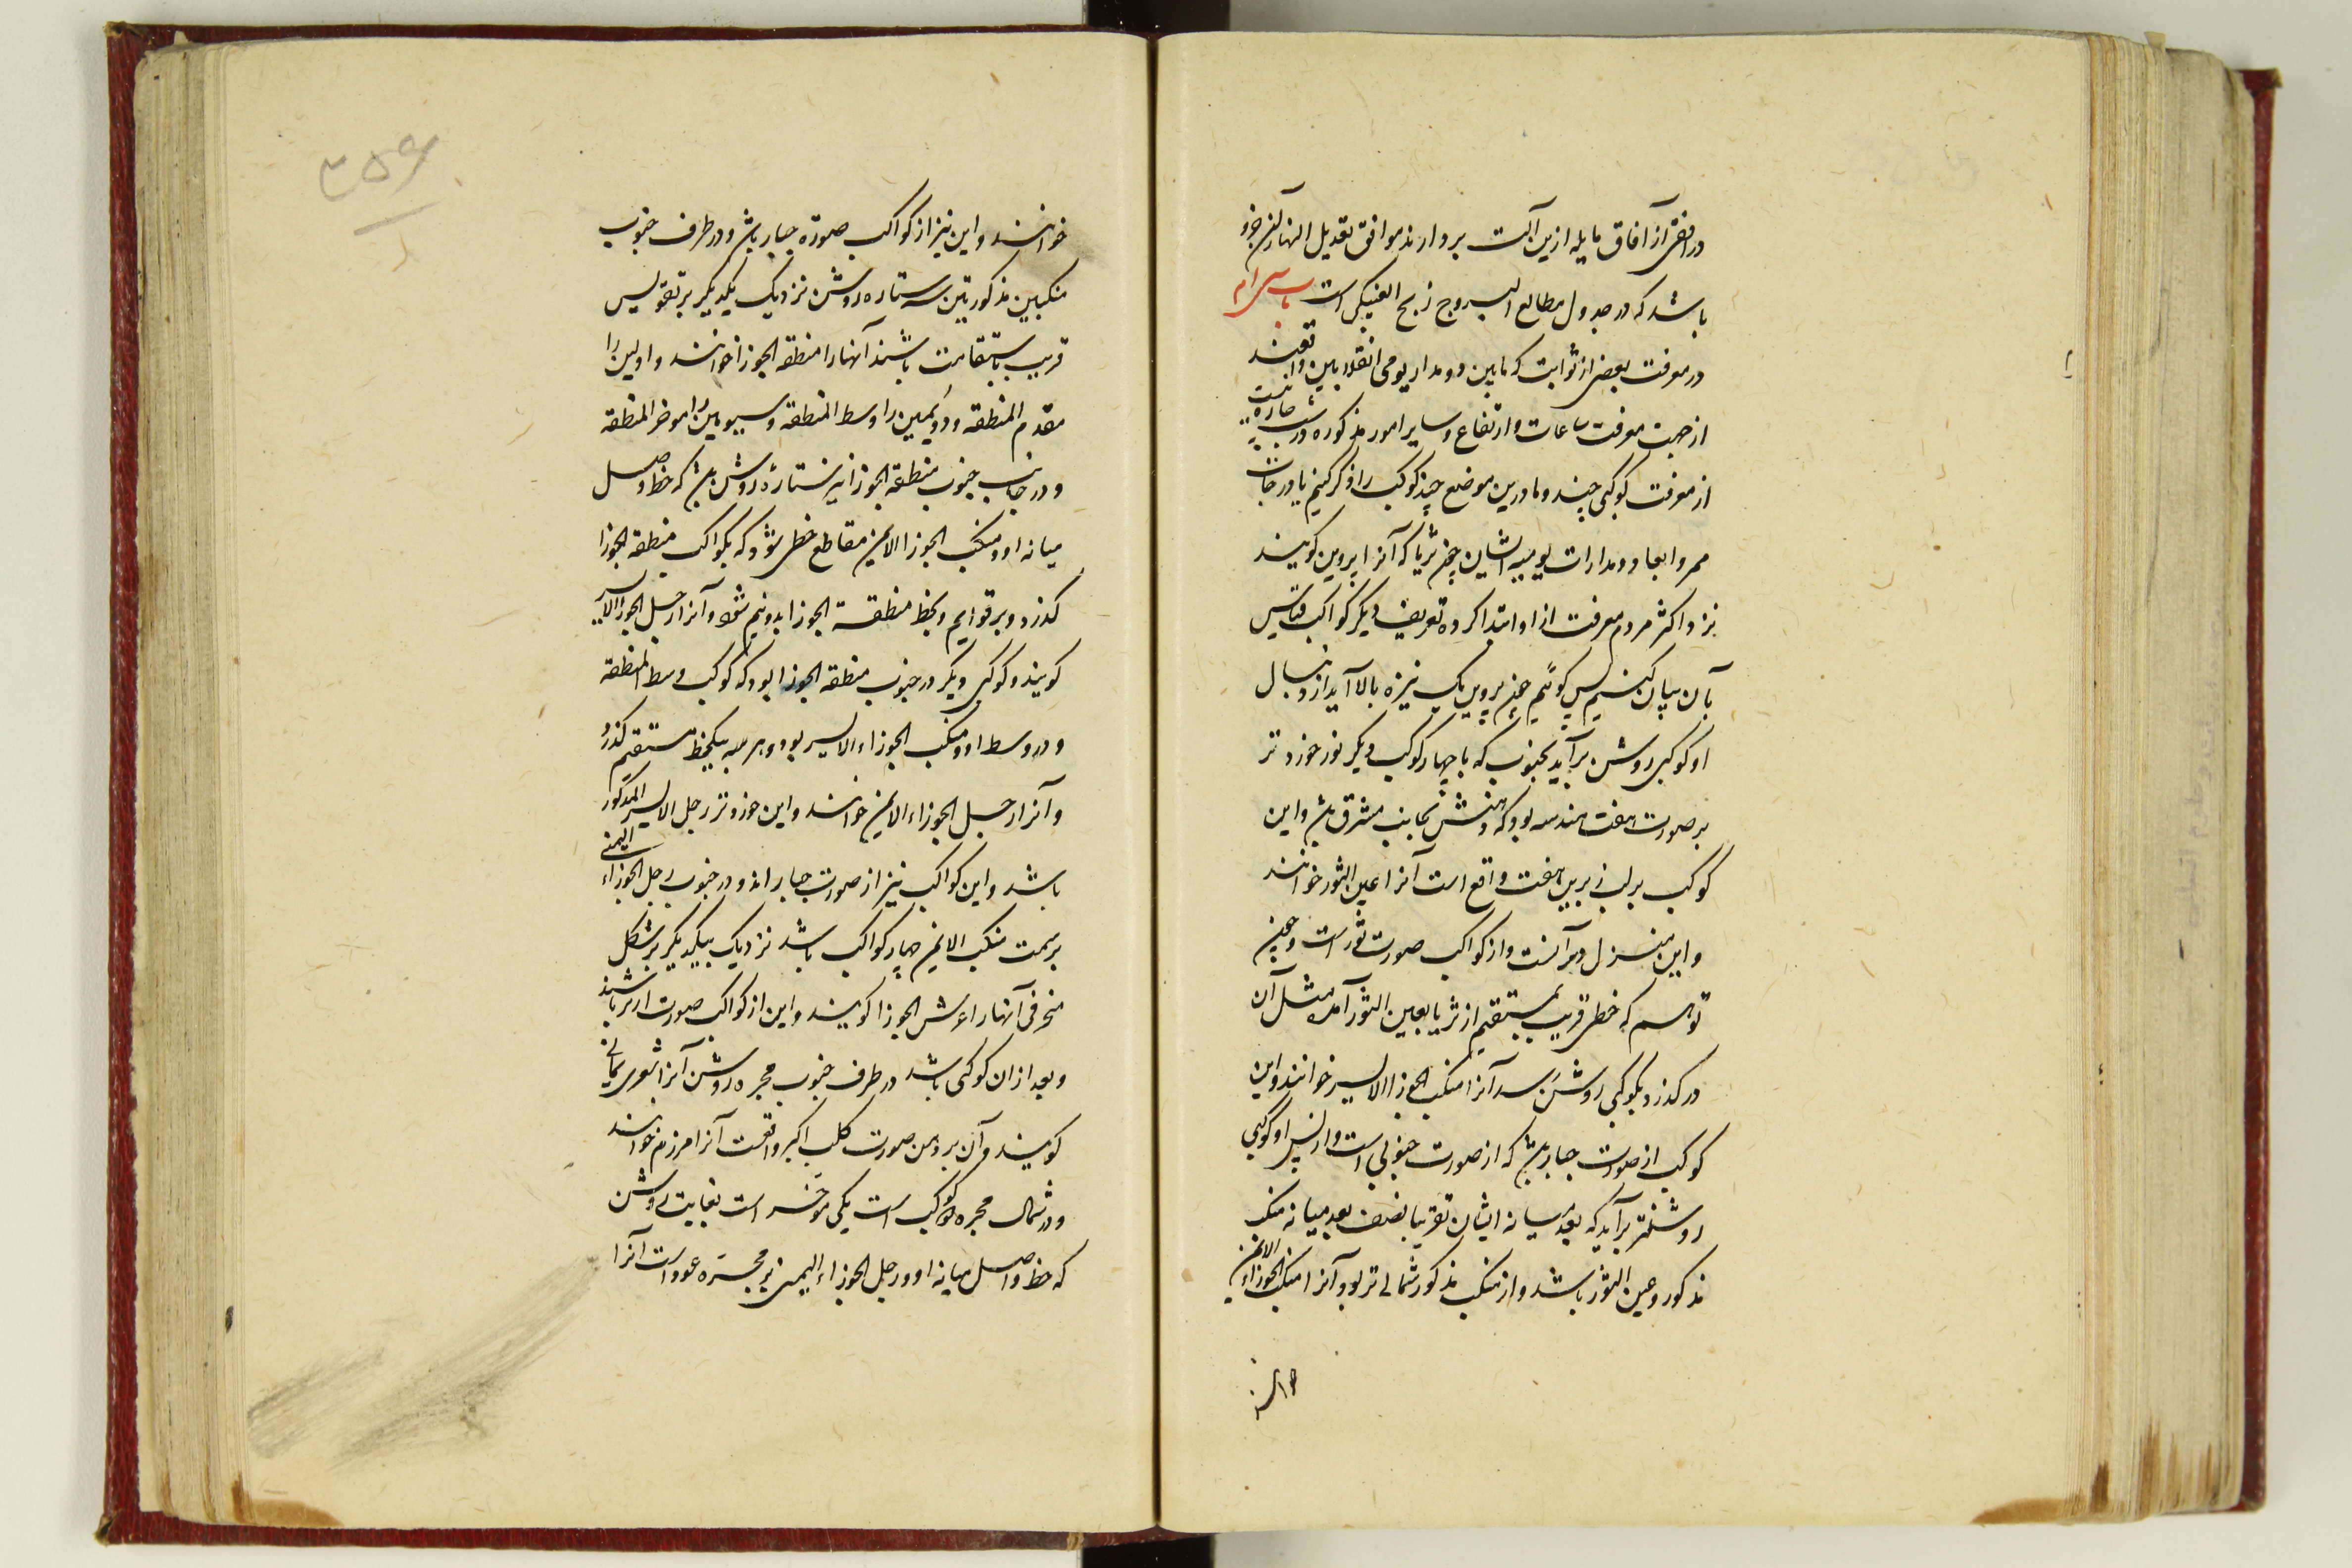 در افقی از آفاق مایله ازین آلت بردارند موافق تعدیل النهار آن جزو
باشد که در جدول مطالع البروج زیج الغبیکی است باب سی ام
در معرفت بعضی از ثوابت که مابین دو مدار یومی انقلابین واقعند
از جهت معرفت ساعات و ارتفاع و سایر امور مذکوره در شب چاره نیست
از معرفت کوکبی چند و ما درین موضع چند کوکب را ذکر کنیم با درجات
ممر و ابعاد و مدارات یومیه ایشان چون ثریا که آنرا پروین گویند
نزد اکثر مردم معرفت از او ابتدا کرده تعریف دیگر کواکب قیاس
بآن بیان کنیم پس گوئیم چون پروین یک نیزه بالا آید از دنبال
او کوکبی روشن برآید بجنوب که با چهار کوکب دیگر نور خورد تر
بر صورت هفت هندسه بود که دهنش بجانب مشرق باشد و این
کوکب بر لب زیرین هفت واقع است آنرا عین الثور خوانند
و این منزل دبرانست و از کواکب صورت ثور است و چون
توهم که خطی قریب بمستقیم از ثریا بعین الثور آمده مثل آن
در گذرد بکوکبی روشن رسد آنرا منکب الجوزا الایسر خوانند و این
کوکب از صورت جبار باشد که از صورت جنوبی است و از پس او کوکبی
روشنتر برآید که بعد میانه ایشان تقریبا نصف بعد میانه منکب
مذکور و عین الثور باشد و از منکب مذکور شمالی تر بود آنرا منکب الجوزاء الایمن
خوانند و این نیز از کواکب صورة جبار باشد و در طرف جنوب
منکبین مذکورتین سه ستاره روشن نزدیک یکدیگر بر تقویس
قریب باستقامت باشند آنهارا منطقه الجوزا خوانند و اولین را
مقدم المنطقه و دویمین را وسط المنطقه و سیومین را موخر المنطقه
و در جانب جنوب منطقة الجوزا نیز ستارهٔ روشن باشد که خط واصل
میانه او و منکب الجوزا الایمن مقاطع خطی شود که بکواکب منطقه الجوزا
گذرد و بر قوایم و بخط منطقة الجوزا بدو نیم شود و آنرا رجل الجوزا الایسر
گویند و کوکبی دیگر در جنوب منطقه الجوزا بود که کوکب وسط المنطقه
و در وسط او و منکب الجوزاء الایسر بود و هر سه بیکخط مستقیم گذرد
و آنرا رجل الجوزاء الایمن خوانند و این خورد تر رجل الایسر المذکور
باشد و این کواکب نیز از صورت جبار اند و در جنوب رجل الجوزاء الیمنی
بر سمت منکب الایمن چهار کواکب باشد نزدیک بیکدیگر بر شکل
منحرفی آنهارا عرش الجوزا گویند و این از کواکب صورت ارنب باشند
و بعد از ان کوکبی باشد در طرف جنوب مجره روشن آنرا شعری یمانی
گویند و آن بر دهن صورت کلب اکبر واقعست آنرا مرزم خوانند
و در شمال مجره دو کوکب است یکی موخر است بغایت روشن
که خط واصل میانه او و رجل الجوزاء الیمنی بر مجره عمود است آنرا